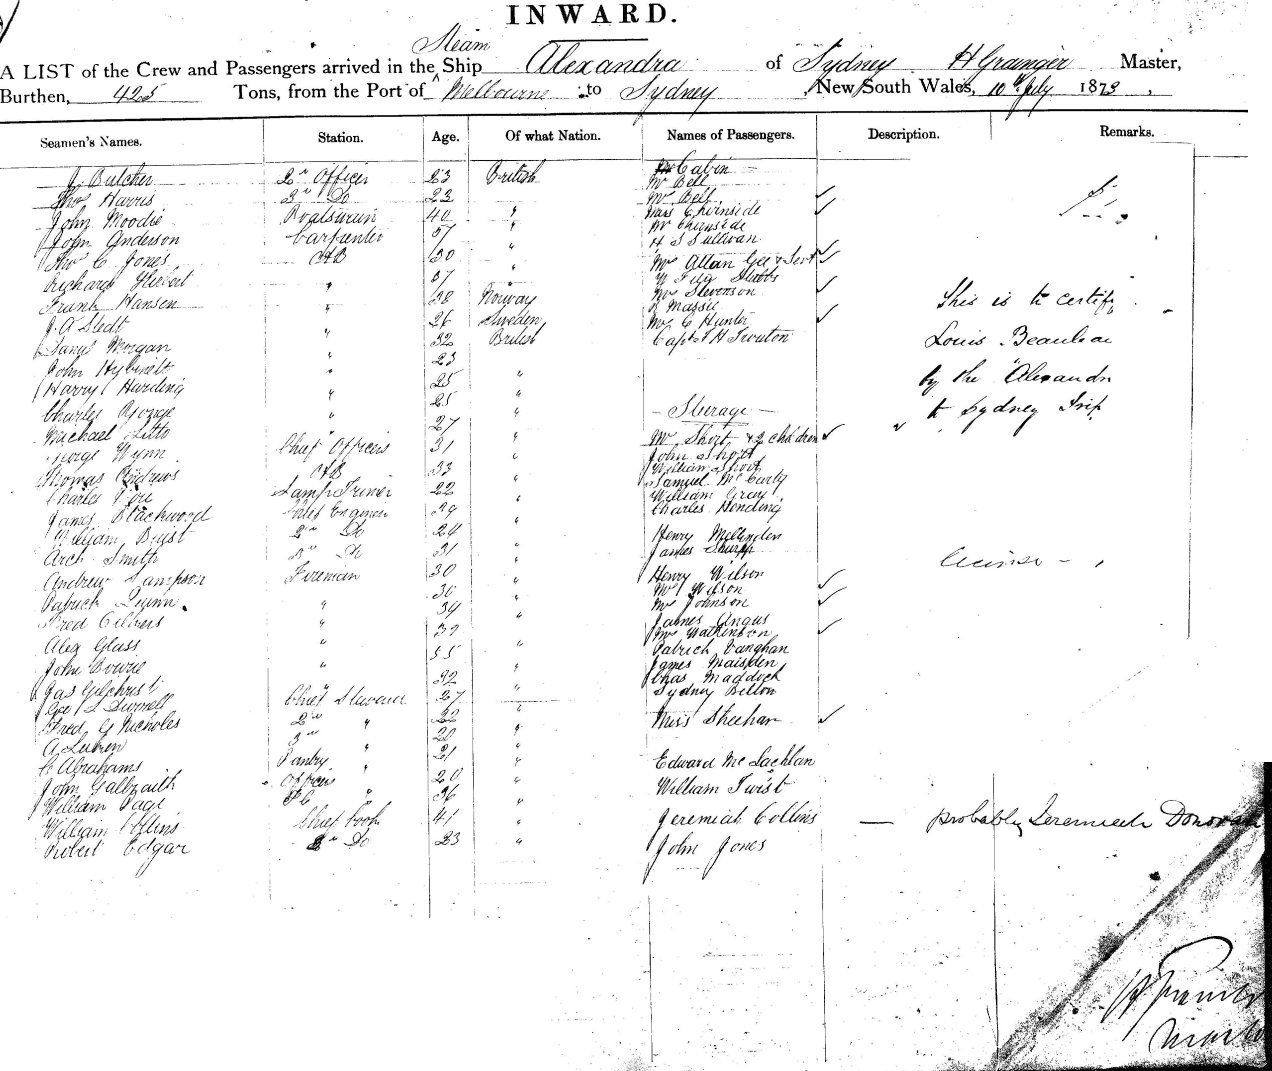 INWARD.
Steam
A LIST of the Crew and Passengers arrived in the Ship Alexandra of Sydney H Grainger Master,
Burthen, 425 Tons, from the Port of Melbourne to Sydney, New South Wales, 10th July 1873,
Seamen's Names. Station. Age. Of what Nation. Names of Passengers. Description. Remarks.
J Butcher 2nd Officer 23 British Cabin
Mr Bell
Thos Harris 3rd Do 23 " Mr Bell
John Moodie Boatswain 40 " Miss Chirnside
Mr Chirnside
John Anderson Carpenter 57 " H S Sullivan
Thos C Jones AB 30 " Mrs Allan
Richard " 37 " Stubbs
Mr Stevenson
Frank Hansen " 38 Norway Massie
J A Stedt " 26 Sweden Mr C Hunter
Morgan " 32 British Capt H Trouton
John " 23 "
Harry Harding " 25 "
Charles George " 25 " Steerage
Michael " 27 " Mrs Short & 2 children
George Wynn Chief Officers 31 " John Short
William Short
Thomas Andrews AB 33 " Samuel McCarty
Charles Lamp Trimer 22 " William Gray
Charles Hending
James Blackwood Chief Engineer 39 "
William Buist 2nd Do 24 " Henry
James Sharpp
Arch Smith 3rd Do 31 "
Andrew Sampson Fireman 30 " Henry Wilson
Mrs Wilson
Patrick Quinn " 30 " Mrs Johnson
Fred " 34 " James Angus
Mrs Watkinson
Alex Glass " 37 " Patrick Vaughan
John Bowie " 55 " James Maisden
Chas Maddock
Jas Gilchrist " 32 " Sydney
Geo Chief Steward 27 "
Fred G Nicholes 2nd " 22 " Miss Sheehan
A 3rd " 20 "
C Abrahams Pantry " 21 " Edward McLachlan
John Galbraith Officers " 20 " William Twist
William Page " 36 "
William Collins Chief Cook 41 " Jeremiah Collins
Robert Edgar 2nd Do 23 " John Jones
This is to certify
Louis Beauleau
by the "Alexandr
to Sydney
probably Jeremiah Donovan